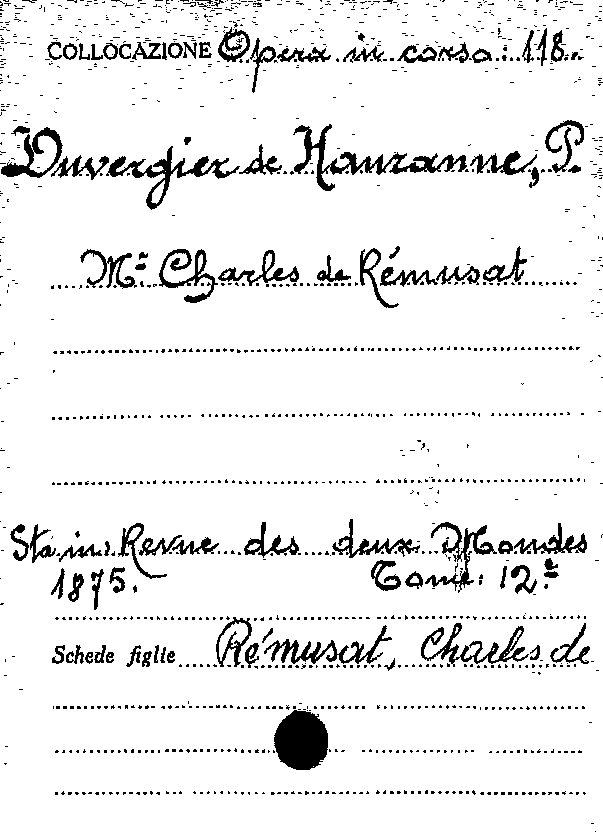 COLLOCAZIONE Opera in corso: 118.
Duvergier de Hauranne, P.
Mr. Charles de Rémusat
Sta in: Revue des deux Mondes
1875. Tome: 12e
Schede figlie Rémusat, Charles de